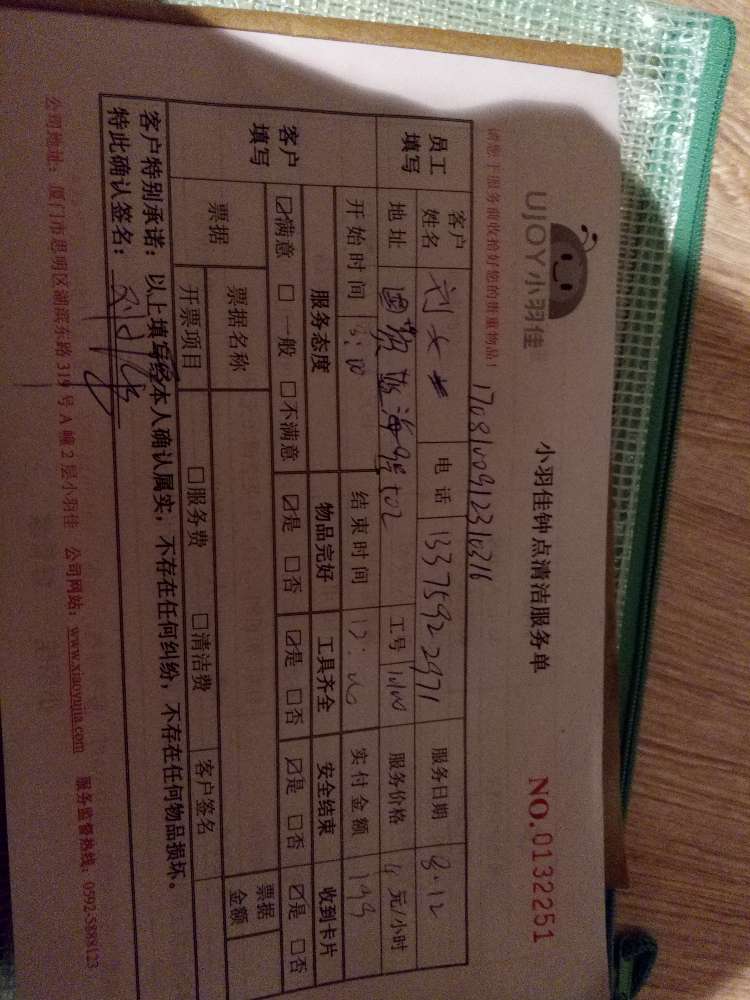 UJOY小羽佳
小羽佳钟点清洁服务单
NO.0132251
请您于服务前收拾好您的贵重物品!
1708100912310316
员工填写
客户姓名 刘女士 电话 13375922971 服务日期 8.12
地址 国贸 海 702 工号 服务价格 元/小时
开始时间 结束时间 实付金额 144
客户填写
服务态度 物品完好 工具齐全 安全结束 收到卡片
☑满意 □一般 □不满意 ☑是 □否 ☑是 □否 ☑是 □否 ☑是 □否
票据 票据名称 票据金额
开票项目 □服务费 □清洁费 客户签名
客户特别承诺:以上填写经本人确认属实,不存在任何纠纷,不存在任何物品损坏。
特此确认签名:
公司地址:厦门市思明区湖滨东路319号A幢2层小羽佳 公司网站:www.xiaoyujia.com 服务监督热线:0592-5888123